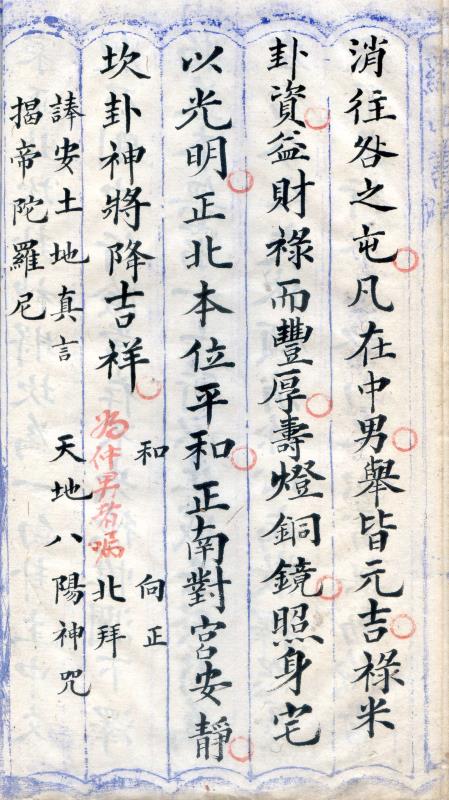 消往咎之屯凡在中男舉皆元吉祿米
卦資益財祿而豐厚壽燈銅鏡照身宅
以光明正北本位平和正南對宮安靜
坎卦神將降吉祥
和
向正
北拜
為仲男者嘱
謹安土地真言
天地八陽神咒
揭帝陀羅尼